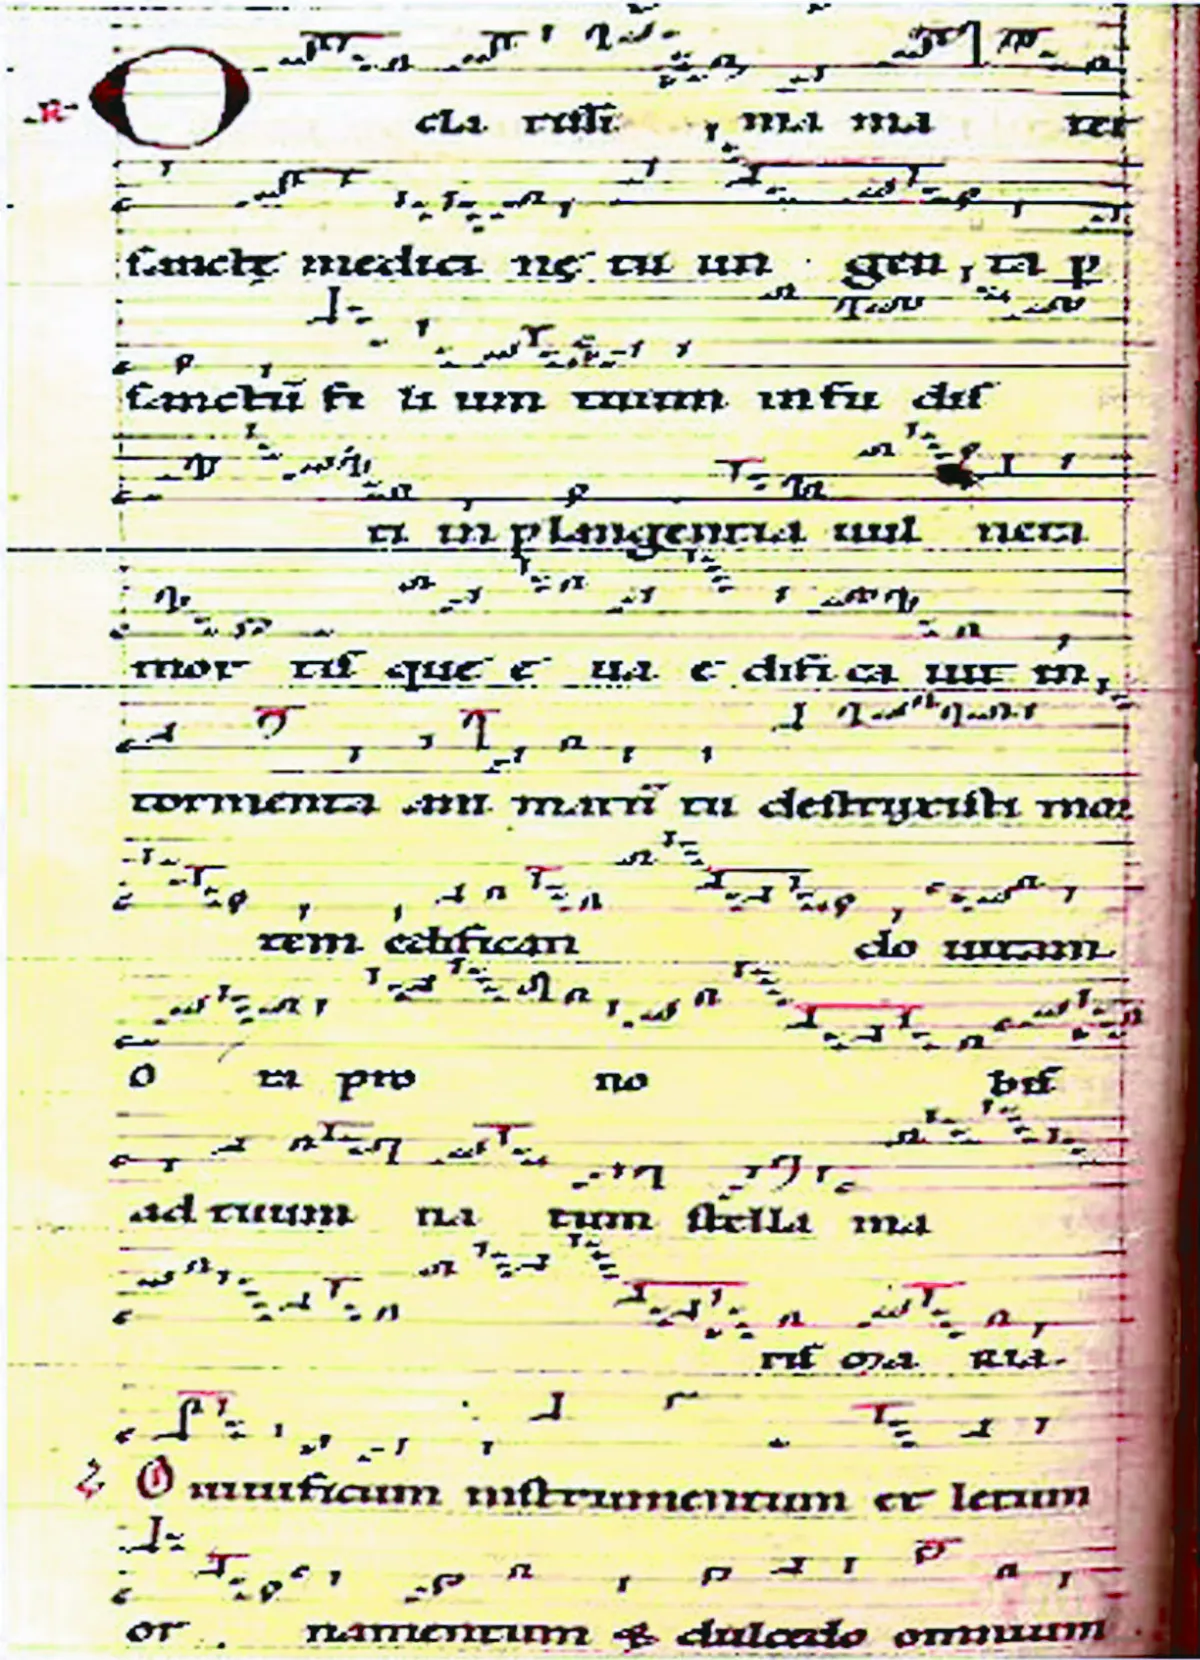 R O cla rissi ma ma ter
sanctę medici nę tu un gen ta p
sanctū fi li um tuum in fu dis
ti in plangentia uul nera
mor tis que e ua e difi ca uit in
tormenta ani marū tu destruxisti mor
tem edifican do uitam
O ra pro no bis
ad tuum na tum stella ma
ris ma ria.
O uiuificum instrumentum et letum
or namentum & dulcedo omnium